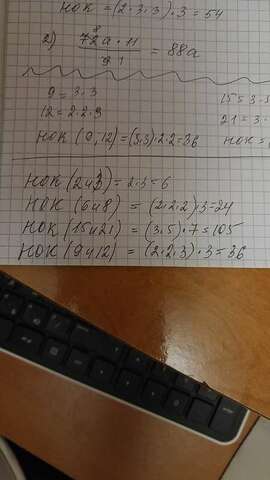 НОК = (2·3·3)·3 = 54
2) 72а·11 / 91 = 88а
9 = 3·3
15 = 3·5
12 = 2·2·3
21 = 3·
НОК (9,12) = (3·3)·2·2 = 36
НОК =
НОК (2и3) = 2·3 = 6
НОК (6и8) = (2·2·2)·3 = 24
НОК (15и21) = (3·5)·7 = 105
НОК (9и12) = (2·2·3)·3 = 36